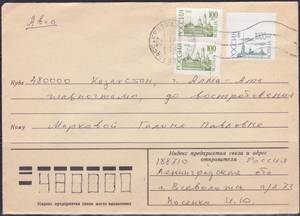 Авиа
РОССИЯ 100
РОССИЯ 100
РОССИЯ
Куда 480000 Казахстан, г. Алма-Ата
главпочтамт, до востребования
Кому Марковой Галине Павловне
Индекс предприятия связи и адрес
отправителя
188710 Россия
Ленинградская обл
г. Всеволожск, п/я 23
Косенко И. Ю.
480000
Индекс предприятия связи места назначения